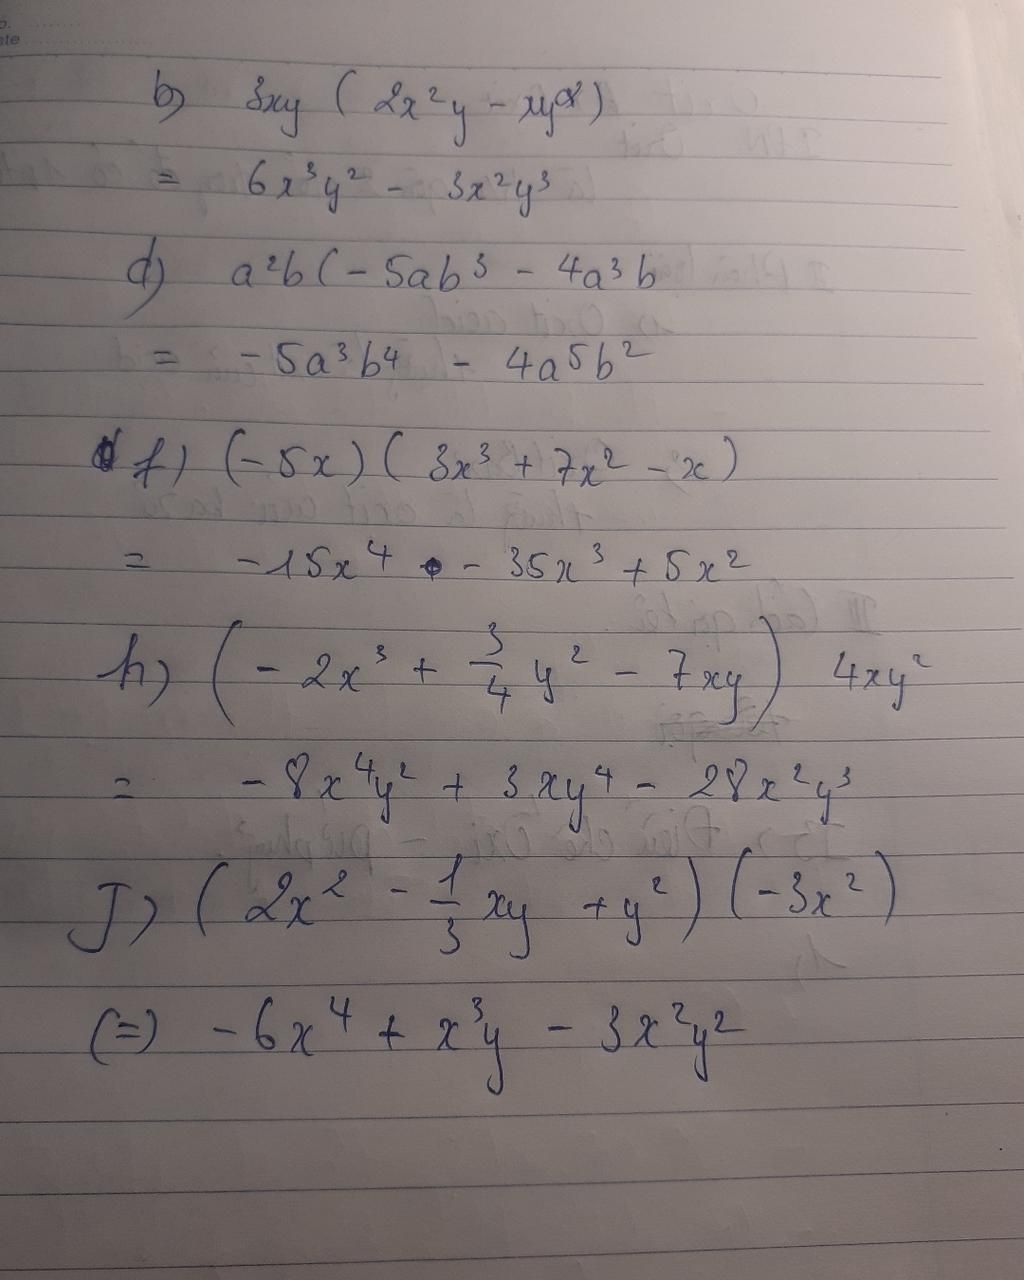 b) 3xy ( 2x²y - xy²)
= 6x³y² - 3x²y³
d) a²b ( - 5ab³ - 4a³b
= - 5a³b⁴ - 4a⁵b²
f) (-5x) ( 3x³ + 7x² - x )
= -15x⁴ - 35x³ + 5x²
h) ( - 2x³ + 3/4 y² - 7xy ) 4xy²
= - 8x⁴y² + 3xy⁴ - 28x²y³
J) ( 2x² - 1/3 xy + y² ) ( -3x² )
(=) - 6x⁴ + x³y - 3x²y²